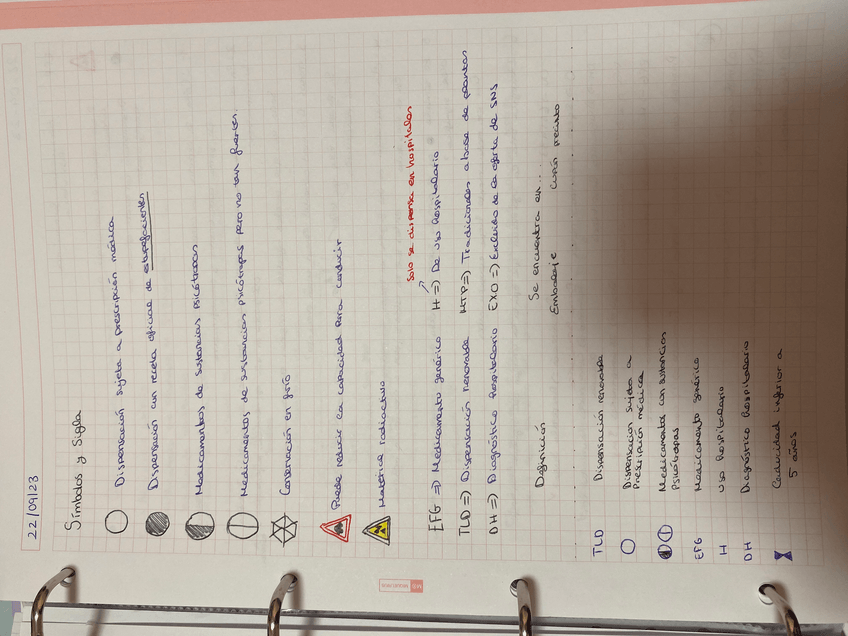 22/09/23
Símbolos y Sigla
Dispensación sujeta a prescripción médica
Dispensación con receta oficial de estupefacientes
Medicamentos de sustancias psicótropas
Medicamentos de sustancias psicótropas pero no tan fuertes.
Conservación en frío
Puede reducir la capacidad para conducir
Material radioactivo
Solo se dispensa en hospitales
EFG => Medicamento genérico H => De uso hospitalario
TLD => Dispensación renovable MTP => Tradicionales a base de plantas
DH => Diagnóstico hospitalario EXO => Excluido de la oferta de SNS
Definición Se encuentra en...
Embalaje Cupón precinto
TLD Dispensación renovable
Dispensación sujeta a
Prescripción médica
Medicamentos con sustancias
Psicótropas
EFG Medicamento genérico
H Uso hospitalario
DH Diagnóstico hospitalario
Caducidad inferior a
5 años